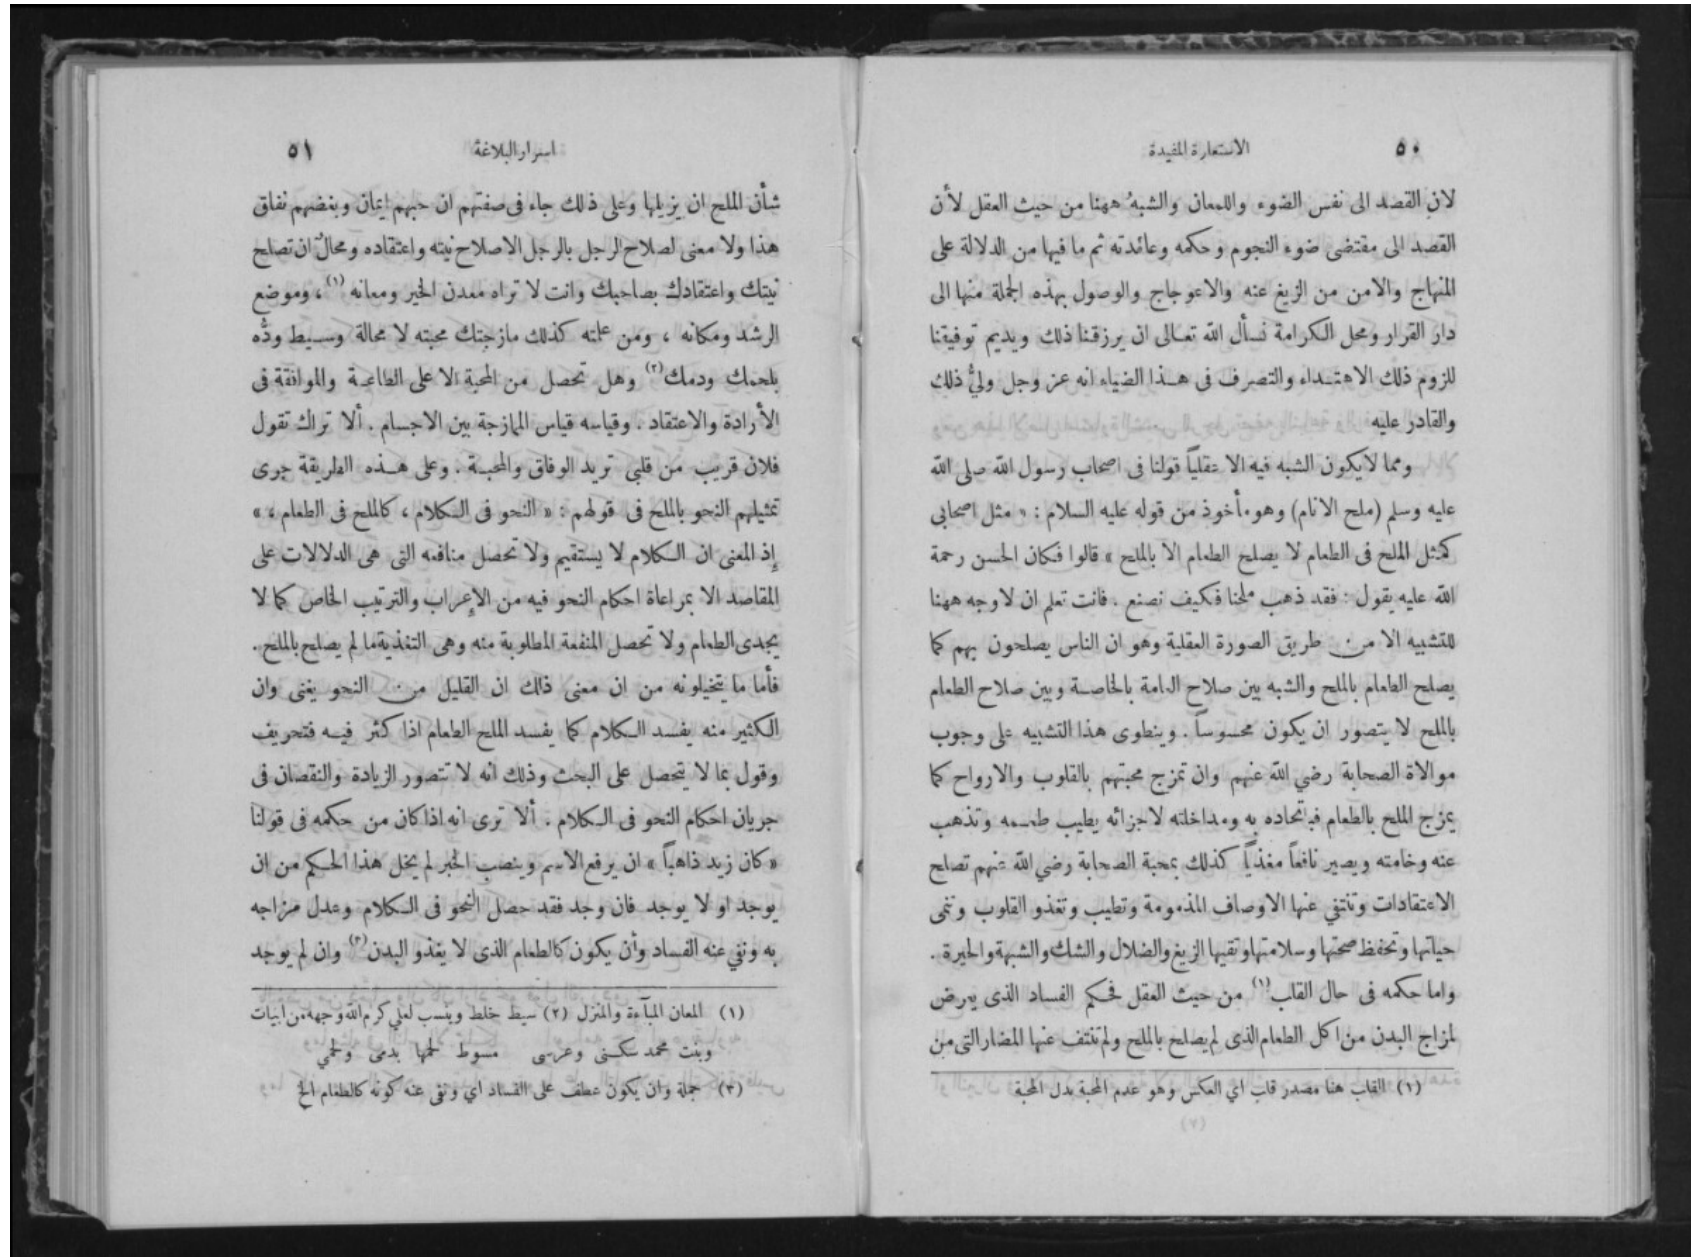 ٥٠
الاستعارة المفيدة
لان القصد الى نفس الضوء واللمعان والشبهُ ههنا من حيث العقل لأن
القصد الى مقتضى ضوء النجوم وحكمه وعائدته ثم ما فيها من الدلالة على
المنهاج والامن من الزيغ عنه والاعوجاج والوصول بهذه الجملة منها الى
دار القرار ومحل الكرامة نسأل الله تعالى ان يرزقنا ذلك ويديم توفيقنا
للزوم ذلك الاهتداء والتصرف فى هذا الضياء انه عز وجل وليُّ ذلك
والقادر عليه
ومما لا يكون الشبه فيه الا عقلياً قولنا فى اصحاب رسول الله صلى الله
عليه وسلم (ملح الانام) وهو مأخوذ من قوله عليه السلام : « مثل اصحابى
كمثل الملح فى الطعام لا يصلح الطعام الا بالملح » قالوا فكان الحسن رحمة
الله عليه يقول : فقد ذهب ملحنا فكيف نصنع . فانت تعلم ان لا وجه ههنا
للتشبيه الا من طريق الصورة العقلية وهو ان الناس يصلحون بهم كما
يصلح الطعام بالملح والشبه بين صلاح العامة بالخاصة وبين صلاح الطعام
بالملح لا يتصور ان يكون محسوساً . وينطوى هذا التشبيه على وجوب
موالاة الصحابة رضي الله عنهم وان تمزج محبتهم بالقلوب والارواح كما
يمزج الملح بالطعام فباتحاده به ومداخلته لاجزائه يطيب طعمه وتذهب
عنه وخامته ويصير نافعاً مغذياً كذلك بمحبة الصحابة رضي الله عنهم تصلح
الاعتقادات وتنتفي عنها الاوصاف المذمومة وتطيب وتغذو القلوب وتنمى
حياتها وتحفظ صحتها وسلامتها وتقيها الزيغ والضلال والشك والشبهة والحيرة .
واما حكمه فى حال القلب (١) من حيث العقل فحكم الفساد الذى يعرض
لمزاج البدن من اكل الطعام الذى لم يصلح بالملح ولم تنتف عنها المضار التى من
(١) القلب هنا مصدر قلب اي العكس وهو عدم المحبة بدل المحبة
(٧)
اسرار البلاغة
٥١
شأن الملح ان يزيلها وعلى ذلك جاء فى صفتهم ان حبهم إيمان وبغضهم نفاق
هذا ولا معنى لصلاح الرجل بالرجل الا صلاح نيته واعتقاده ومحالٌ ان تصلح
نيتك واعتقادك بصاحبك وانت لا تراه معدن الخير ومعانه (١) ، وموضع
الرشد ومكانه ، ومن علمته كذلك مازجتك محبته لا محالة وسيط ودُّه
بلحمك ودمك (٢) وهل تحصل من المحبة الا على الطاعة والموافقة فى
الأرادة والاعتقاد . وقياسه قياس الممازجة بين الاجسام . ألا تراك تقول
فلان قريب من قلبى تريد الوفاق والمحبة . وعلى هذه الطريقة جرى
تمثيلهم النحو بالملح فى قولهم : « النحو فى الكلام ، كالملح فى الطعام ، »
إذ المعنى ان الكلام لا يستقيم ولا تحصل منافعه التى هى الدلالات على
المقاصد الا بمراعاة احكام النحو فيه من الإعراب والترتيب الخاص كما لا
يجدى الطعام ولا تحصل المنفعة المطلوبة منه وهى التغذية ما لم يصلح بالملح .
فأما ما يتخيلونه من ان معنى ذلك ان القليل من النحو يغنى وان
الكثير منه يفسد الكلام كما يفسد الملح الطعام اذا كثر فيه فتحريف
وقول بما لا يتحصل على البحث وذلك انه لا تتصور الزيادة والنقصان فى
جريان احكام النحو فى الكلام . ألا ترى انه اذا كان من حكمه فى قولنا
« كان زيد ذاهباً » ان يرفع الاسم وينصب الخبر لم يخل هذا الحكم من ان
يوجد او لا يوجد فان وجد فقد حصل النحو فى الكلام وعدل مزاجه
به ونفي عنه الفساد وأن يكون كالطعام الذى لا يغذو البدن (٣) وان لم يوجد
(١) المعان المبآءة والمنزل (٢) سيط خلط وينسب لعلي كرم الله وجهه من ابيات
وبنت محمد سكنى وعرسى مسوط لحمها بدمى ولحمي
(٣) جملة وان يكون عطف على الفساد اي ونفى عنه كونه كالطعام الخ